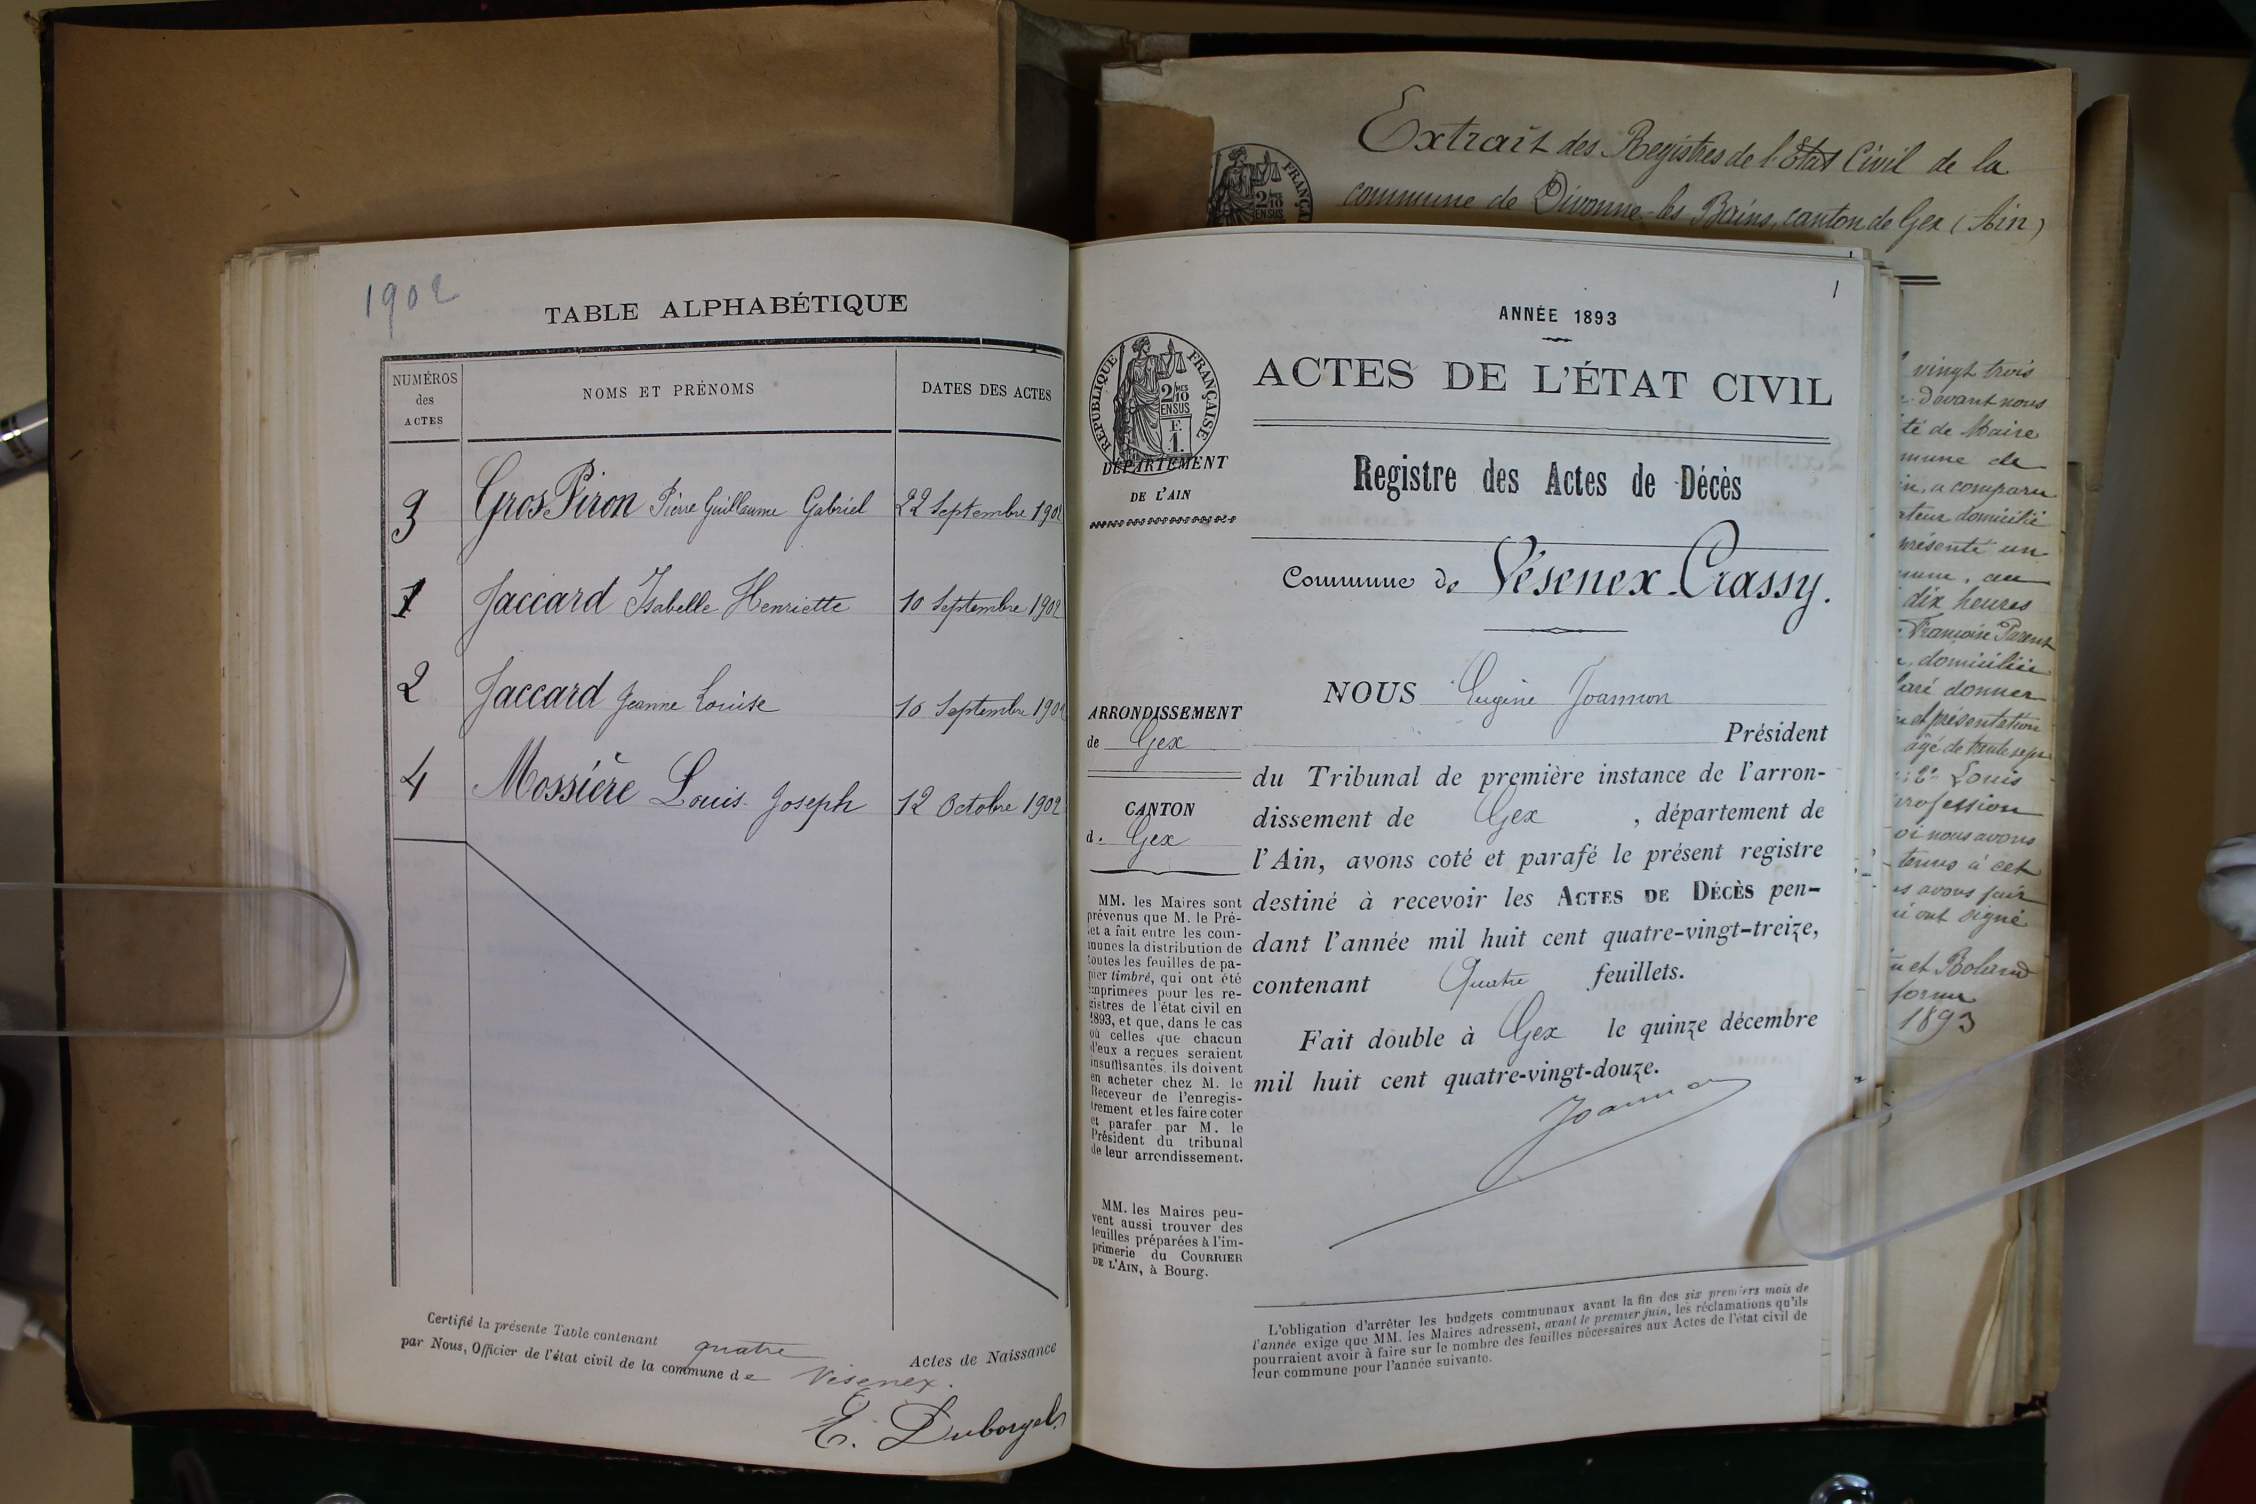 1902
TABLE ALPHABÉTIQUE
NUMÉROS
des
ACTES
NOMS ET PRÉNOMS
DATES DES ACTES
3 Gros Piron Pierre Guillaume Gabriel 22 Septembre 1902
1 Jaccard Isabelle Henriette 10 Septembre 1902
2 Jaccard Jeanne Louise 10 Septembre 1902
4 Mossière Louis Joseph 12 Octobre 1902
Certifié la présente Table contenant quatre Actes de Naissance
par Nous, Officier de l'état civil de la commune de Vésenex.
E. Duborgel
1
ANNÉE 1893
ACTES DE L'ÉTAT CIVIL
RÉPUBLIQUE FRANÇAISE
2/10
EN SUS
F.
1.
DÉPARTEMENT
DE L'AIN
Registre des Actes de Décès
Commune de Vésenex-Crassy.
ARRONDISSEMENT
de Gex
CANTON
d. Gex
MM. les Maires sont
prévenus que M. le Pré-
fet a fait entre les com-
munes la distribution de
toutes les feuilles de pa-
pier timbré, qui ont été
imprimées pour les re-
gistres de l'état civil en
1893, et que, dans le cas
où celles que chacun
d'eux a reçues seraient
insuffisantes, ils doivent
en acheter chez M. le
Receveur de l'enregis-
trement et les faire coter
et parafer par M. le
Président du tribunal
de leur arrondissement.
MM. les Maires peu-
vent aussi trouver des
feuilles préparées à l'im-
primerie du COURRIER
DE L'AIN, à Bourg.
NOUS Eugène Joannon
Président
du Tribunal de première instance de l'arron-
dissement de Gex, département de
l'Ain, avons coté et parafé le présent registre
destiné à recevoir les ACTES DE DÉCÈS pen-
dant l'année mil huit cent quatre-vingt-treize,
contenant Quatre feuillets.
Fait double à Gex le quinze décembre
mil huit cent quatre-vingt-douze.
Joannon
L'obligation d'arrêter les budgets communaux avant la fin des six premiers mois de
l'année exige que MM. les Maires adressent, avant le premier juin, les réclamations qu'ils
pourraient avoir à faire sur le nombre des feuilles nécessaires aux Actes de l'état civil de
leur commune pour l'année suivante.
Extrait des Registres de l'Etat Civil de la
commune de Divonne-les-Bains, canton de Gex (Ain)
FRANÇA
2/10
EN SUS
vingt trois
devant nous
de Maire
de
a comparu
domicilié
présenté un
au
dix heures
Françoise Parent
domiciliée
donner
présentation
âgé de trente sept
Louis
profession
nous avons
tenus à cet
avons fait
ont signé
et Roland
1893